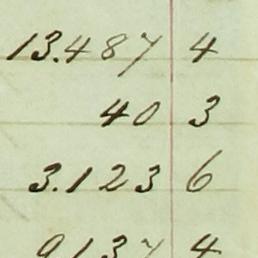 13.487 4
40 3
3.123 6
9137 4